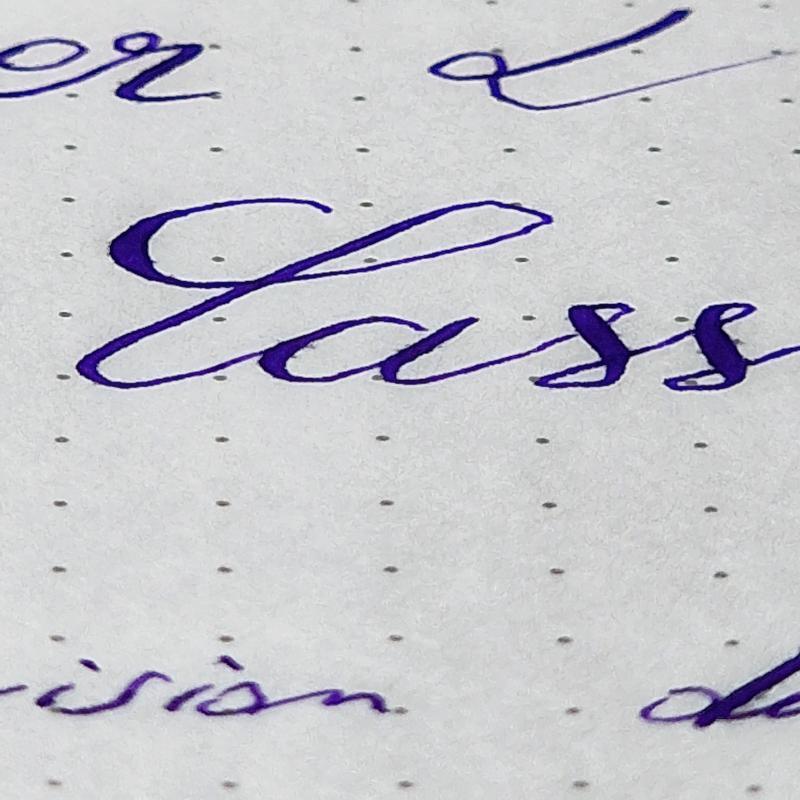 or d
Class
ision